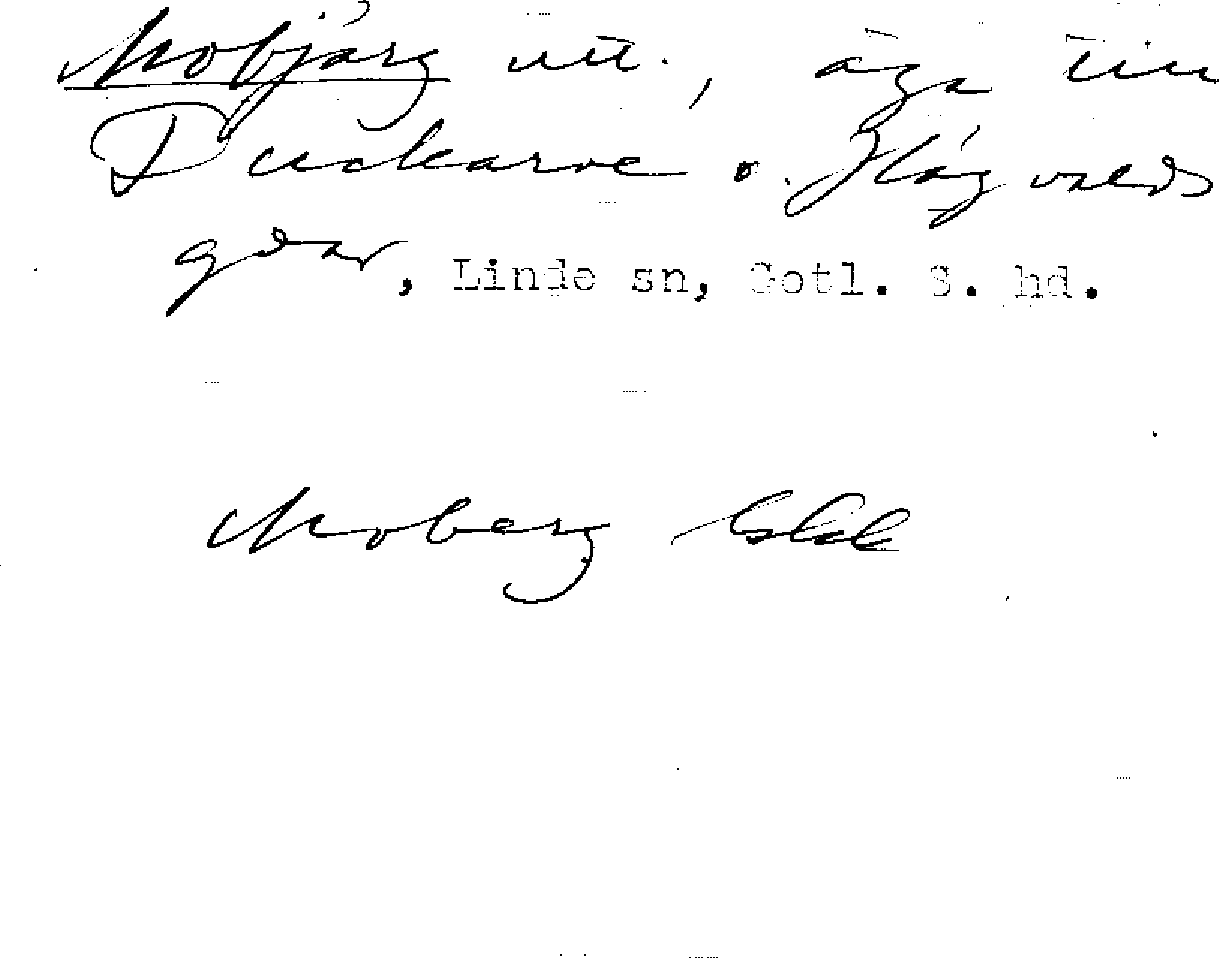 Mobjärg utt., äga till
Duckarve o. Hägvalds
gdar, Linde sn, Gotl. S. hd.
Moberg Ebkk